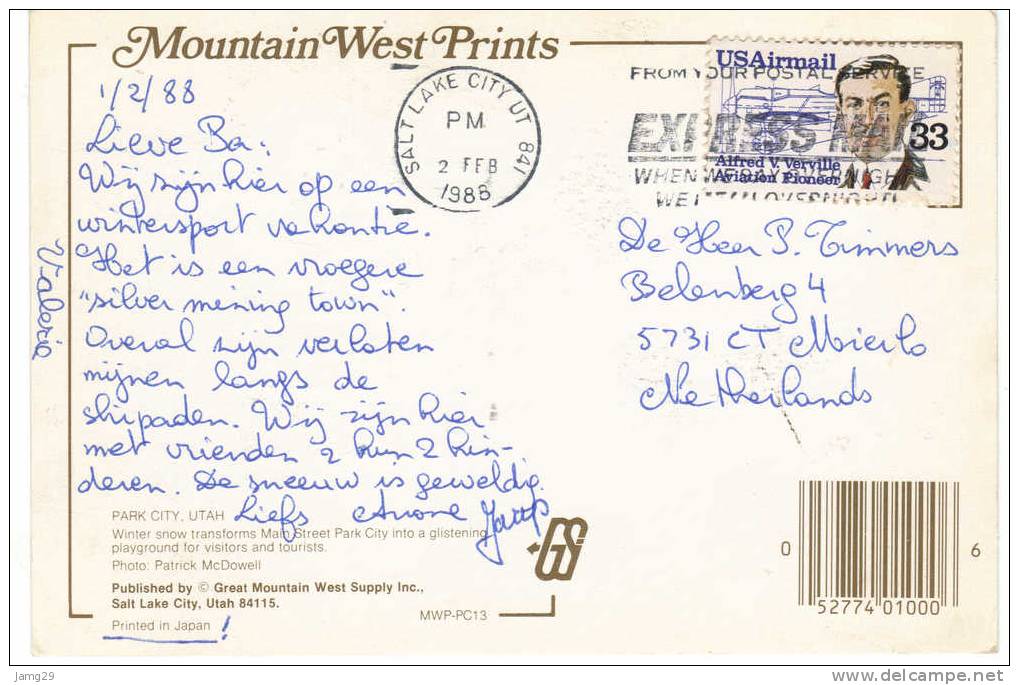 Mountain West Prints
1/2/88
Lieve Ba:
Wij zijn hier op een
wintersport vakantie.
Het is een vroegere
"silver mining town".
Overal zijn verlaten
mijnen langs de
skipaden. Wij zijn hier
met vrienden & hun 2 kin-
deren. De sneeuw is geweldig.
Liefs
Valerie
SALT LAKE CITY UT 841
PM
2 FEB
1988
FROM YOUR POSTAL SERVICE
EXPRESS MAIL
USAirmail
33
Alfred V. Verville
Aviation Pioneer
De Heer P. Timmers
Belenberg 4
5731 CT Mierlo
Netherlands
PARK CITY, UTAH
Winter snow transforms Main Street Park City into a glistening
playground for visitors and tourists.
Photo: Patrick McDowell
Published by © Great Mountain West Supply Inc.,
Salt Lake City, Utah 84115.
MWP-PC13
Printed in Japan !
0 52774 01000 6
jamg29
www.delcampe.net